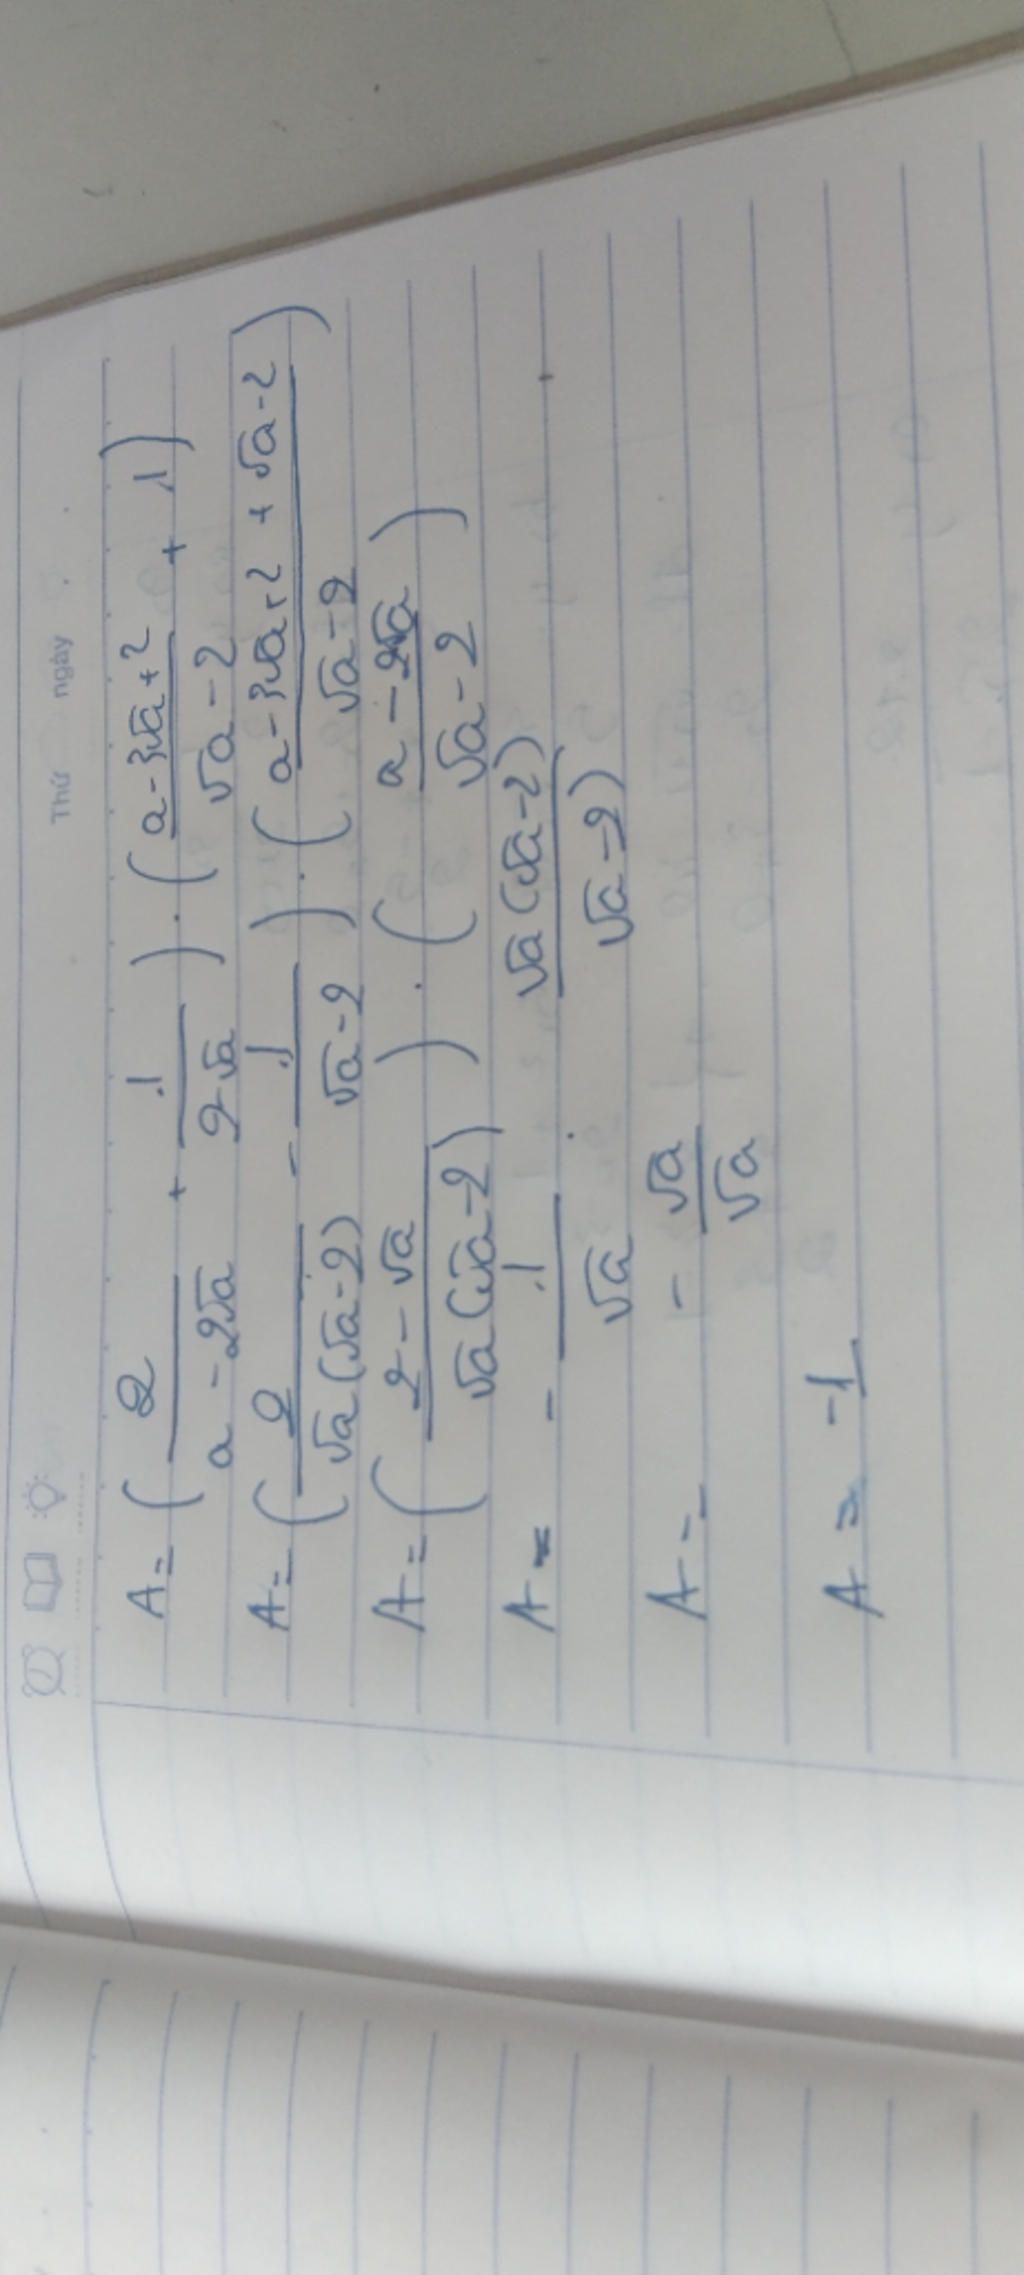 Thứ ngày
A = ( 2 / (a - 2√a) + 1 / (2√a) ) . ( (a - 3√a + 2) / (√a - 2) + 1 )
A = ( 2 / (√a(√a - 2)) - 1 / (√a - 2) ) . ( (a - 3√a + 2 + √a - 2) / (√a - 2) )
A = ( (2 - √a) / (√a(√a - 2)) ) . ( (a - 2√a) / (√a - 2) )
A = - 1 / √a . √a(√a - 2) / (√a - 2)
A = - √a / √a
A = -1